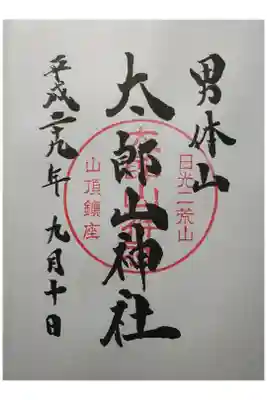 男体山
日光二荒山
太郎山神社
山頂鎮座
平成二九年 九月十日